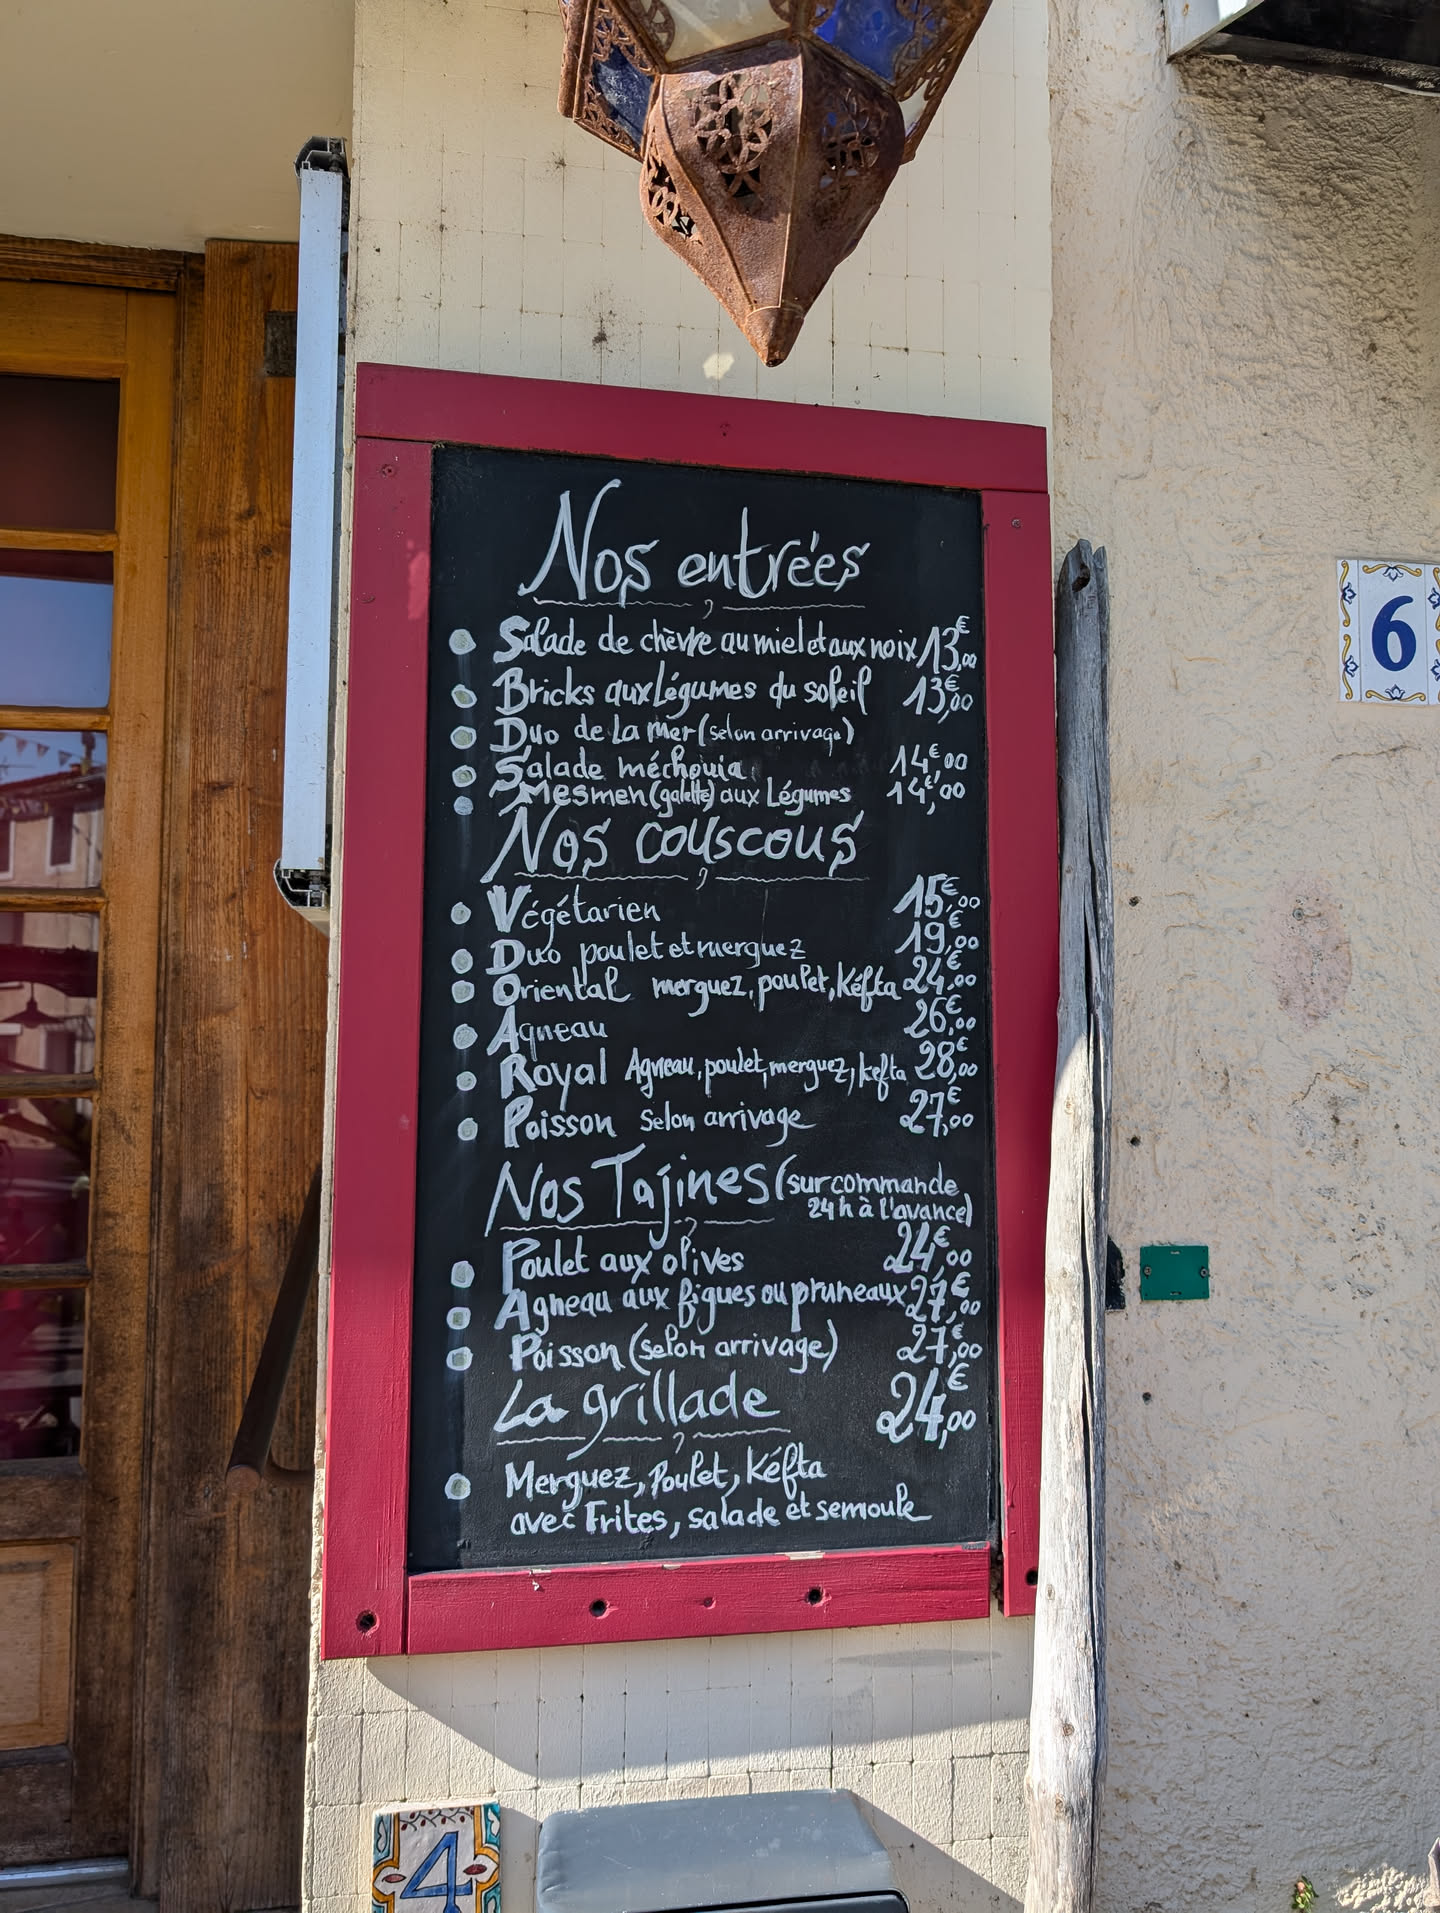 Nos entrées
Salade de chèvre au miel et aux noix 13€,00
Bricks aux Légumes du soleil 13€,00
Duo de La mer (selon arrivage)
Salade méchouia 14€,00
Mesmen (galette) aux Légumes 14€,00
Nos couscous
Végétarien 15€,00
Duo poulet et merguez 19€,00
Oriental merguez, poulet, Kéfta 24€,00
Agneau 26€,00
Royal Agneau, poulet, merguez, kefta 28€,00
Poisson selon arrivage 27€,00
Nos Tajines (sur commande
24h à l'avance)
Poulet aux olives 24€,00
Agneau aux figues ou pruneaux 27€,00
Poisson (selon arrivage) 27€,00
La grillade 24€,00
Merguez, Poulet, Kéfta
avec Frites, salade et semoule
6
4